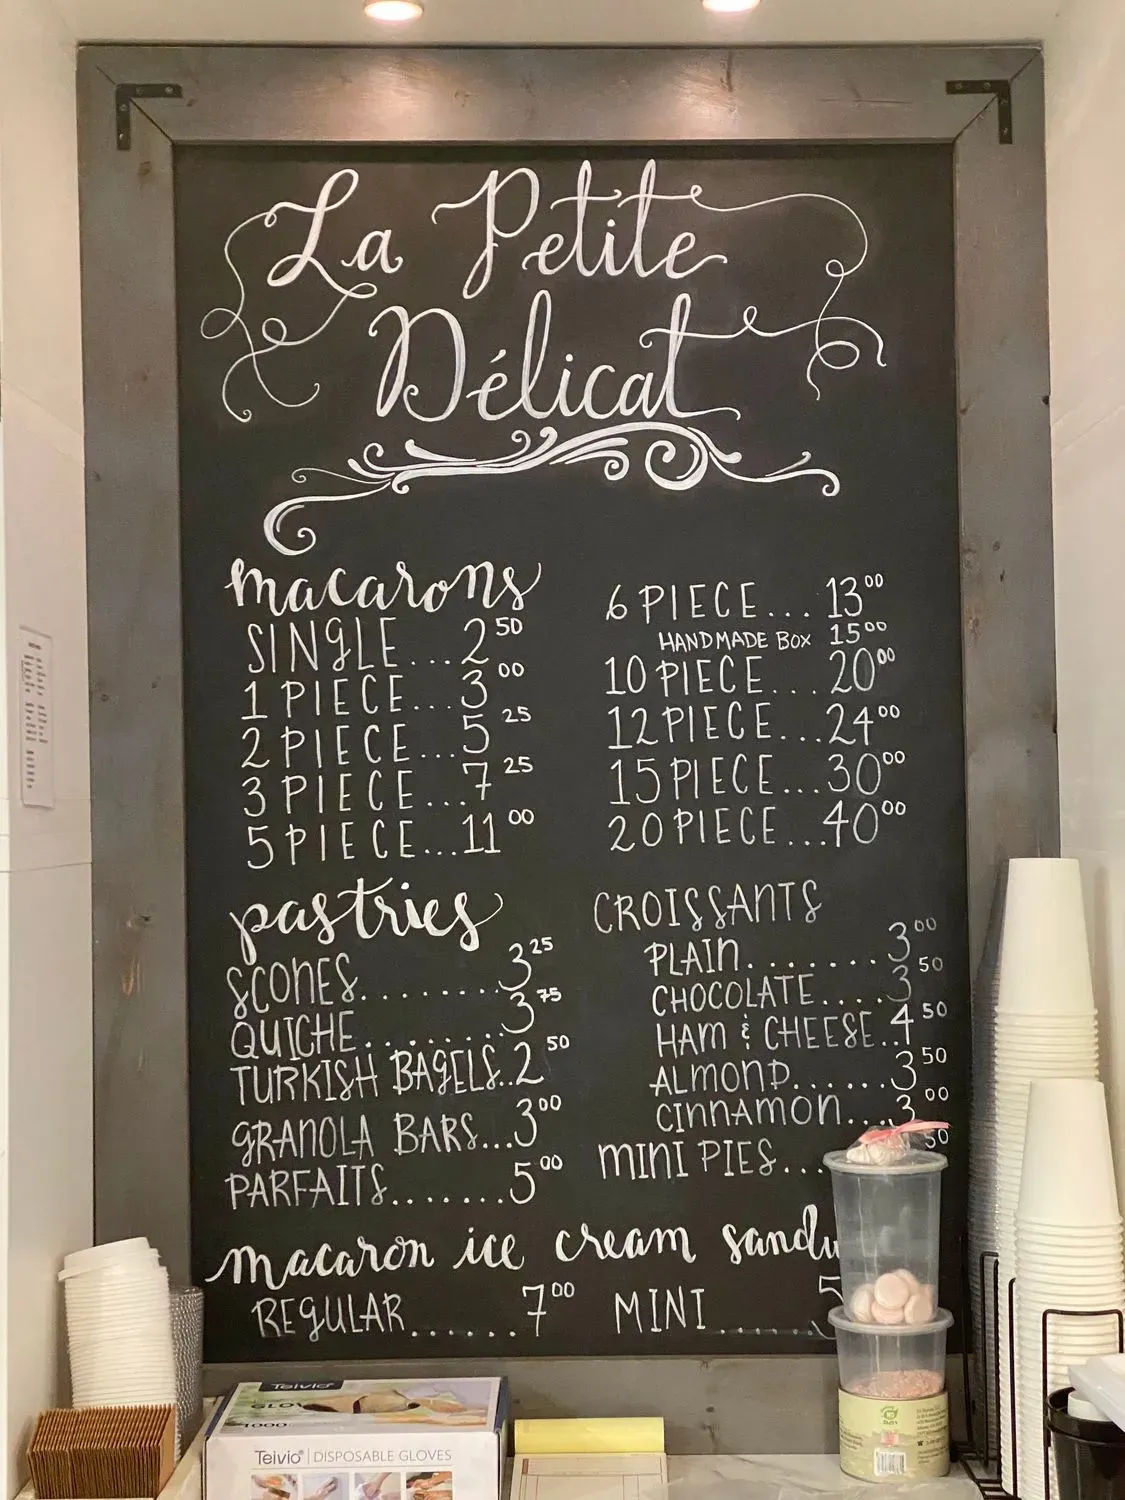 La Petite
Délicat
macarons
SINGLE...2 50
1 PIECE...3 00
2 PIECE...5 25
3 PIECE...7 25
5 PIECE...11 00
6 PIECE...13 00
HANDMADE BOX 15 00
10 PIECE...20 00
12 PIECE...24 00
15 PIECE...30 00
20 PIECE...40 00
pastries
SCONES........3 25
QUICHE........3 75
TURKISH BAGELS..2 50
GRANOLA BARS...3 00
PARFAITS.......5 00
CROISSANTS
PLAIN.......3 00
CHOCOLATE....3 50
HAM & CHEESE..4 50
ALMOND......3 50
CINNAMON...3 00
MINI PIES... 50
macaron ice cream
REGULAR......7 00
MINI.......5
Teivio
1000
Teivio® | DISPOSABLE GLOVES